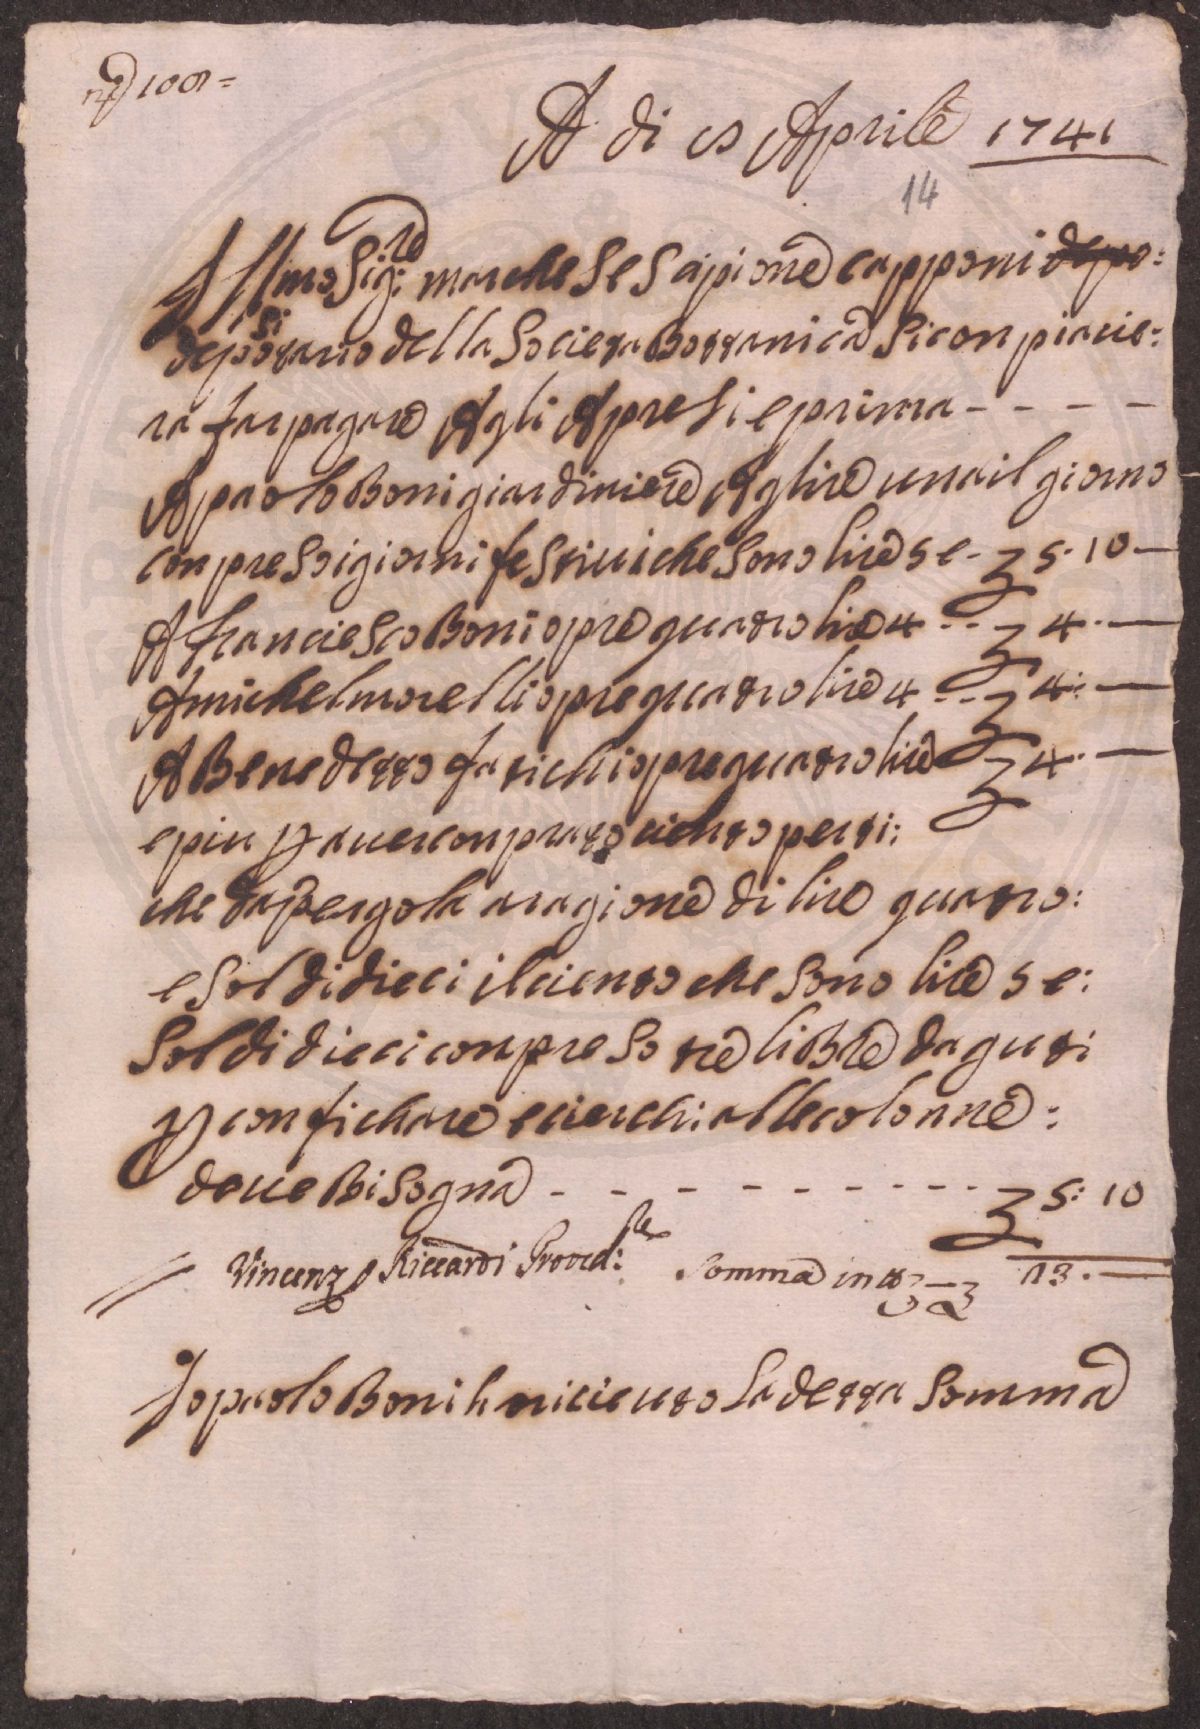 n° 100 =
A di 15 Aprile 1741
14
Ill.mo Sig:re marchese Scipione capponi depo:
depositario della Societa Bottanica Si conpiacie:
ra far pagare Agli Apresi e prima - - - -
A paolo Boni giardiniere A glire una il giorno
conpreso i giorni festivi che sono lire 5 e - 5. 10 —
A franciesco Boni opre quatro lire 4 - - 4. —
A michel morelli opre quatro lire 4 - - 4: —
A Benedetto fatichi opre quatro lire 4. —
e piu p aver conprato ciento perti:
che da pergola a ragione di lire quatro:
e soldi dieci il ciento che sono lire 5 e:
Soldi dieci conpreso tre libre daguti
p confichare e cierchi alle colonne:
dove Bisogna - - - - - - - - - - 5: 10
Vincenzo Riccardi Proved:re Somma in tt° — 23. —
Io paolo Boni ho riceiuto la detta Somma